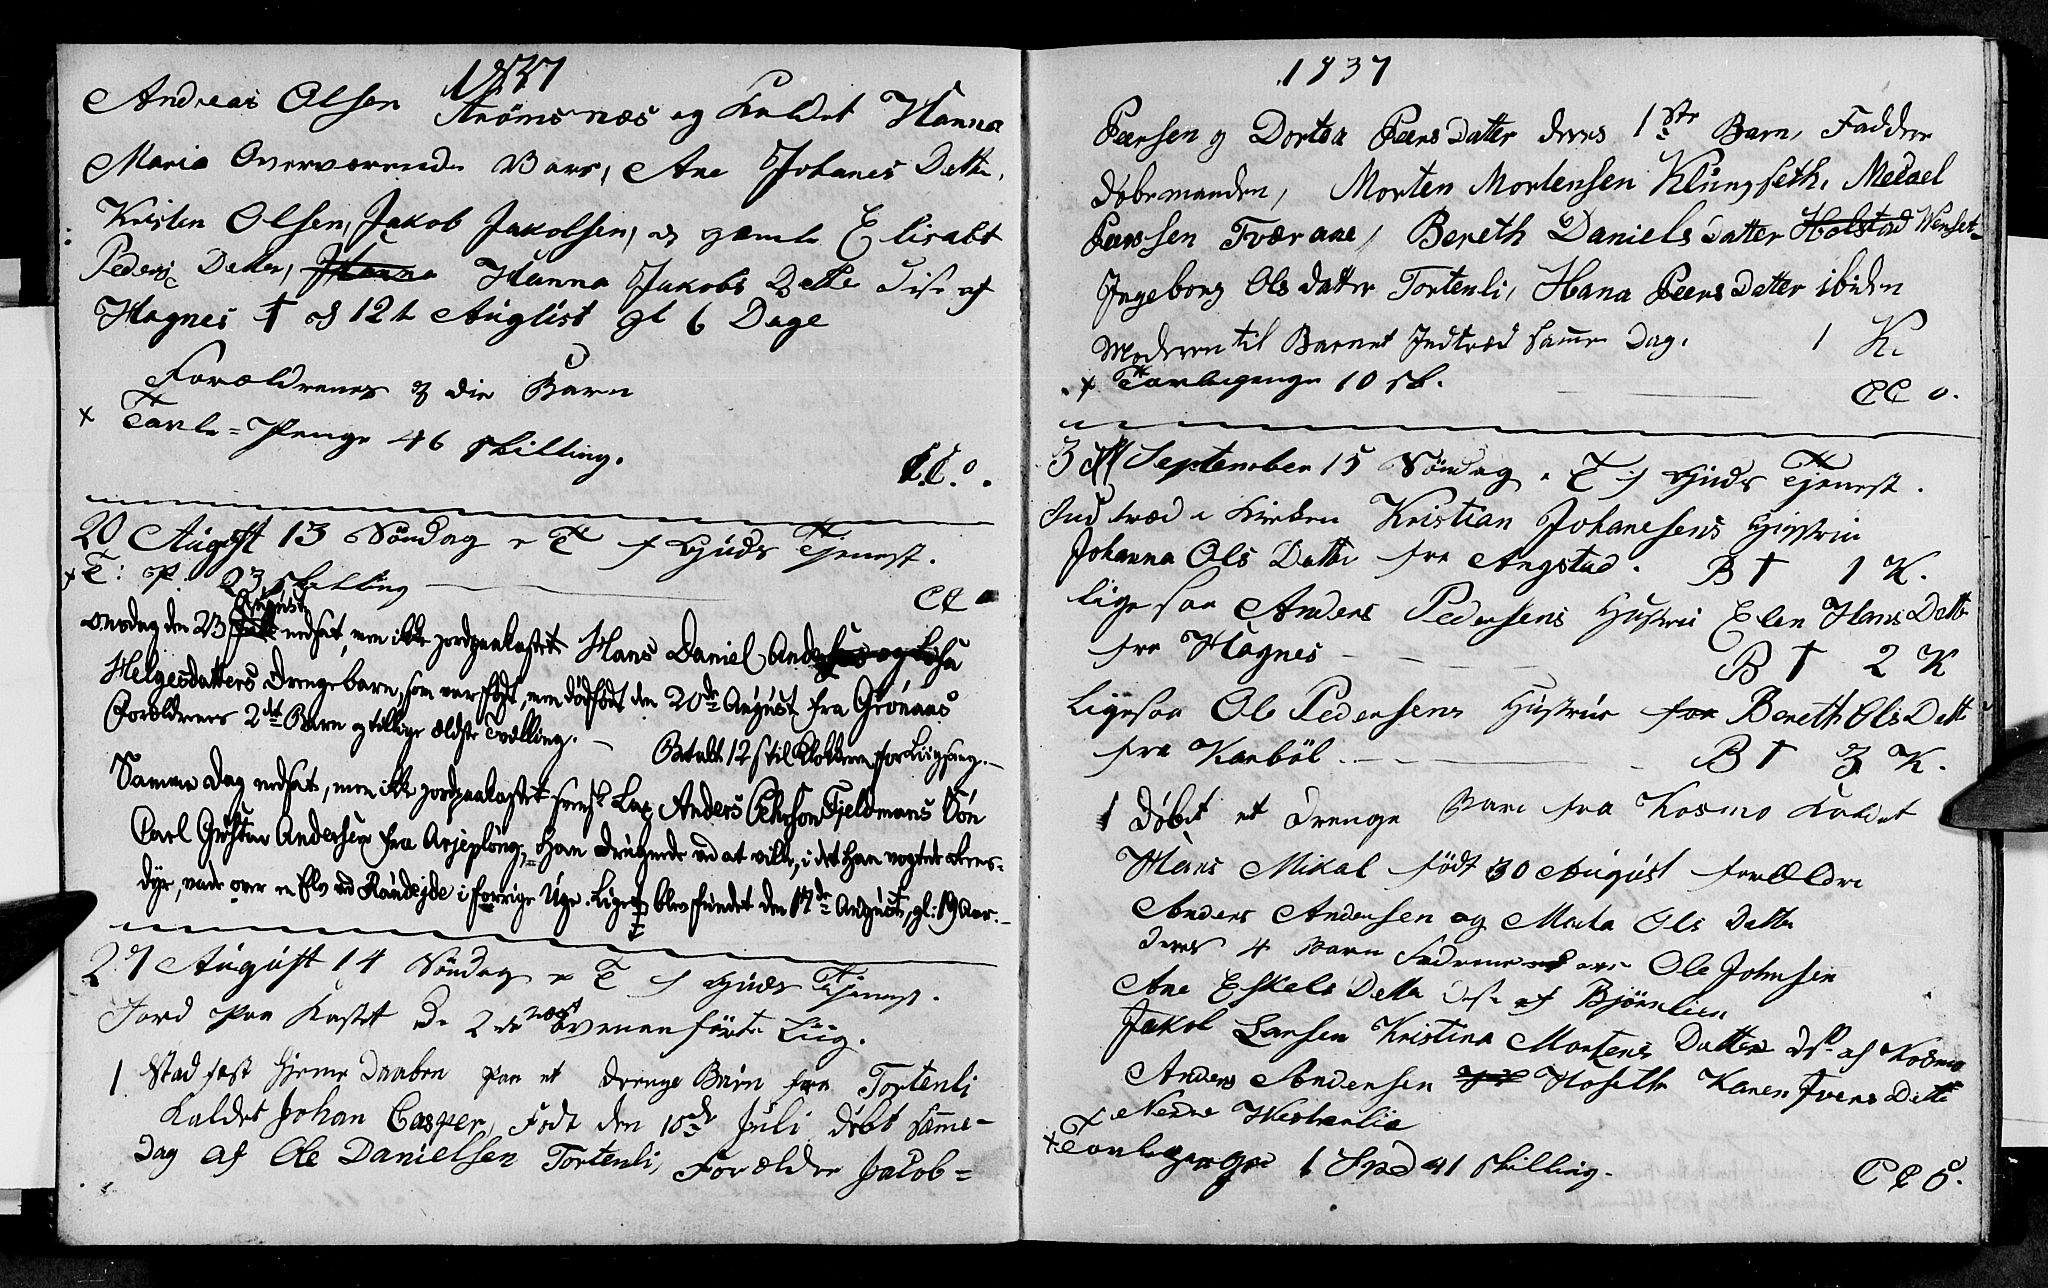 1837
Andreas Olsen Strömsnæs og Kaldet Hanna
Maria Overværende Vare, Ane Johanes Datter,
Kristen Olsen, Jakob Jakobsen, og gamle Elisabt
Peders Datter, Hanna Hanna Jakobs Datter Dise af
Hagnes † d 12te August gl 6 Dage
Forældrenes die Barn
× Tavle-Penge 46 skilling.
C.C.o.
20 August 13 Söndag e T f Guds Tjenest.
× T: P. 23 skilling
CC
Onsdag den 23 August nedsat, men ikke jordpaakastet Hans Daniel Andersens og Lisa
Helgesdatters Drengebarn, som var født, men dødfødt den 20de August fra Grønaas
Forældrenes 2det Barn og tillige ældste Tvilling. – Betalt 12 s til Klokkeren for Liigsang. –
Samme Dag nedsat, men ikke jordpaakastet svensk Lap Anders Pehrson Fjeldmans Søn
Carl Gustav Andersen fra Arjeplóng, – Han druknede ved at ville, i det han vogtede Reens-
dyr, vade over en Elv ved Randejde i forrige Uge. Liget blev fundet den 17de August, gl: 19 Aar. –
27 August 14 Söndag e T f Guds Tjenest.
Jord Paa Kastet De 2de næst ovenanförte Liig.
1 Stadfæst Hjeme Daaben paa et Drenge Barn fra Tortenli
Kaldet Johan Casper, Födt den 10de Juli döbt samme-
Dag af Ole Danielsen Tortenli, Forældre Jacob=
1837
Peersen og Dortea Peersdatter deres 1ste Barn, Faddere
Döbemanden, Morten Mortensen Klungseth, Mekael
Peersen Tværaae, Bereth Danielsdatter Holstad Venset-
Ingeborg Olsdatter Tortenli, Hana Peersdatter ibiden
Moderen til Barnet Indtræd samme Dag. 1 K.
× Tavlepenge 10 sk.
CC o.
3 September 15 Söndag e T f Guds Tjenest.
Ind træd i Kirken Kristian Johanesens Hustru
Johanna Ols Datter fra Angstad. B † 1 K.
lige saa Anders Pedersens Hustru Elen Hans Datter
fra Hagnes B † 2 K
Ligesaa Ole Pedersens Hustrue fra Bereth Ols Datt
fra Karböl B † 3 K.
1 Döbt et Drenge Barn fra Kosmo Kaldet
Hans Mikal födt 30 August forældre
Anders Andersen og Marta Ols Datter
deres 4 Barn Fadrene are Ole Johnsen
Ane Eskels Datter Dise af Björnlien
Jakob Larsen Kristina Mortens Datter ds af Kosmo
Anders Andersen Hoseth Karen Ivers Datte
Nedre Westerlia
× Tavlepenge 1 Spd 41 skilling.
CCo.